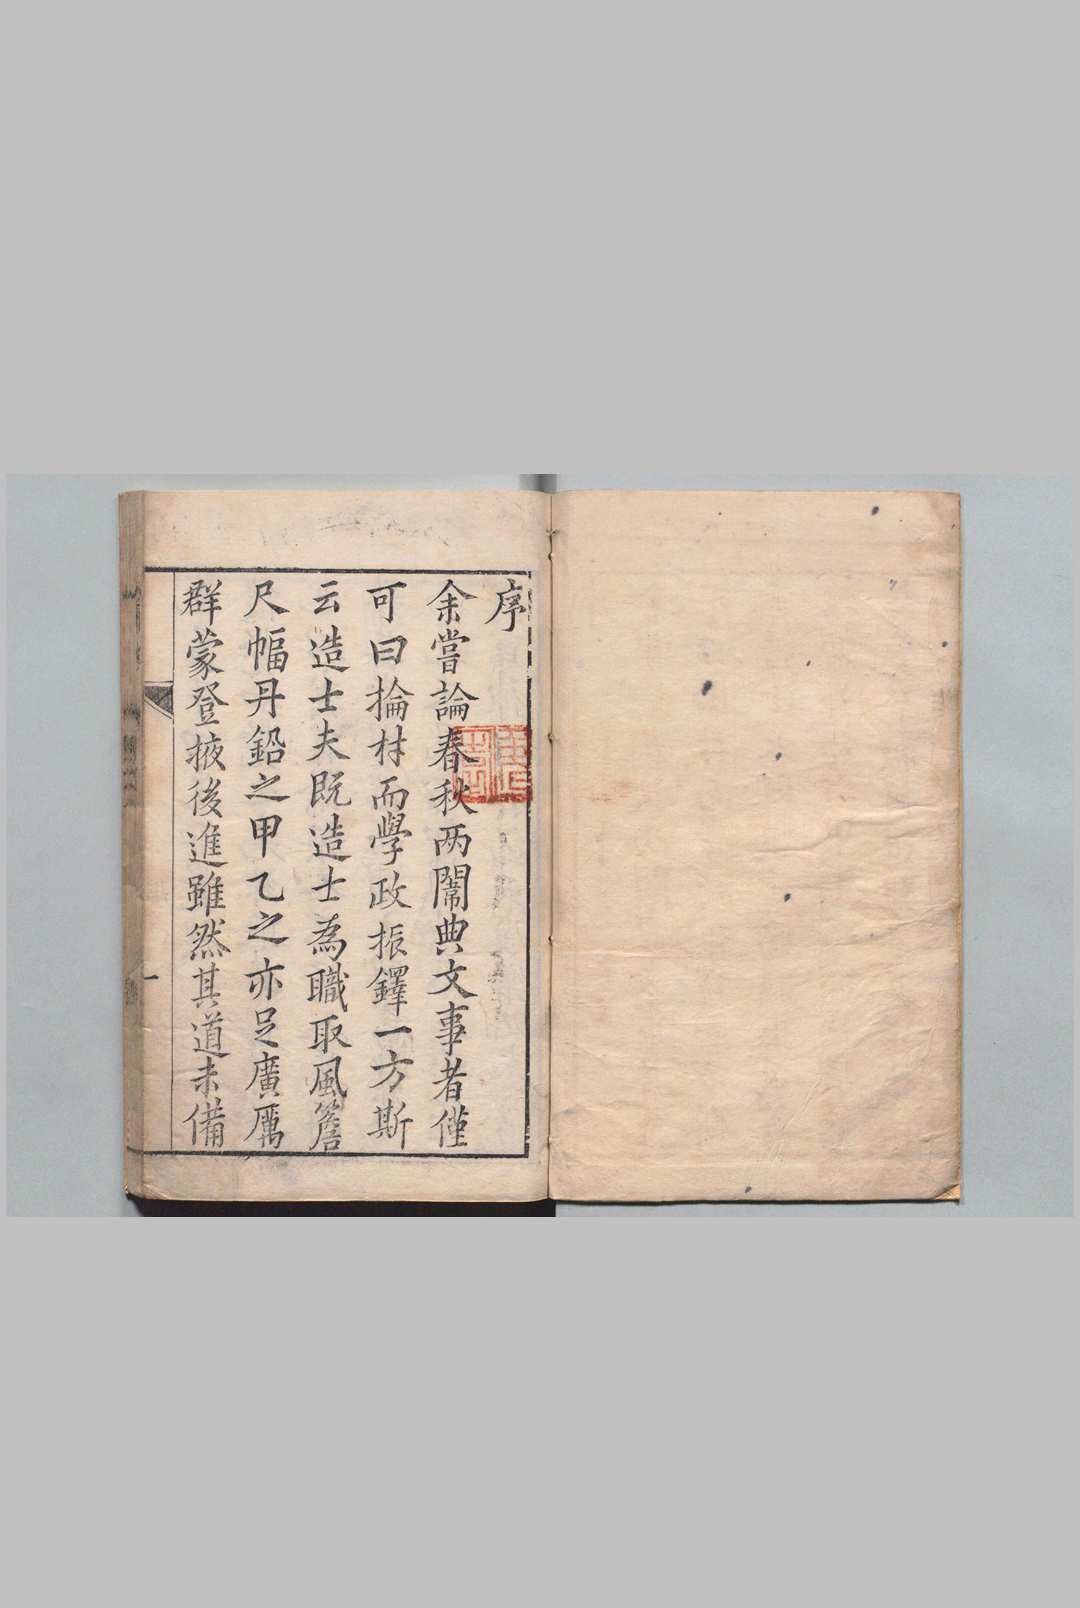 序
余嘗論春秋两闈典文事者僅
可曰掄材而學政振鐸一方斯
云造士夫既造士為職取風簷
尺幅丹鉛之甲乙之亦足廣厲
群蒙登掖後進雖然其道未備
一